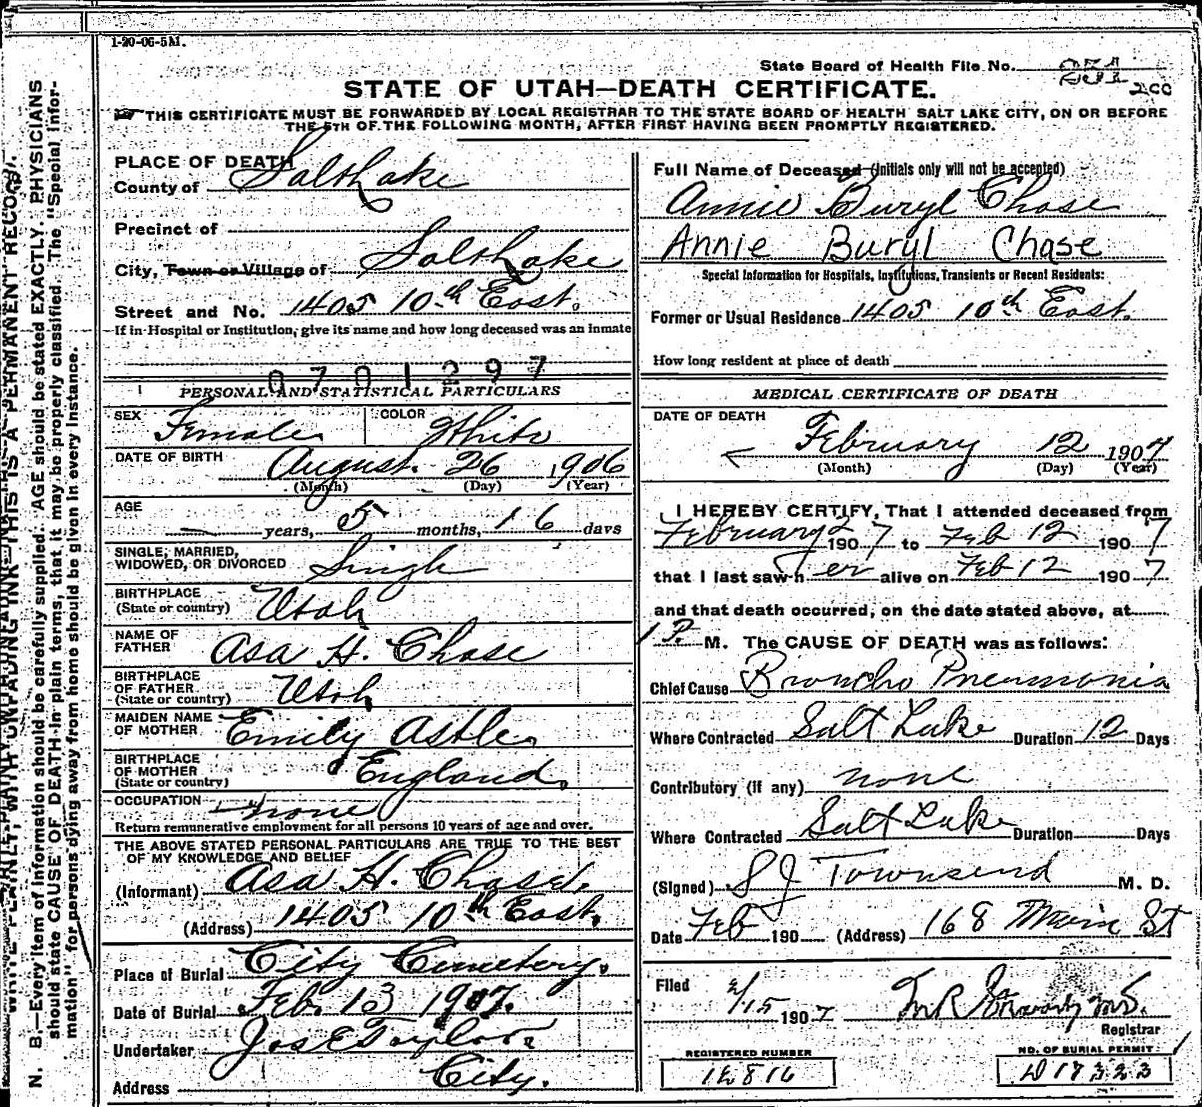 1-20-06-5M.
State Board of Health File No.
200
STATE OF UTAH—DEATH CERTIFICATE.
THIS CERTIFICATE MUST BE FORWARDED BY LOCAL REGISTRAR TO THE STATE BOARD OF HEALTH SALT LAKE CITY, ON OR BEFORE
THE 5TH OF THE FOLLOWING MONTH, AFTER FIRST HAVING BEEN PROMPTLY REGISTERED.
PLACE OF DEATH
County of Salt Lake
Precinct of
City, Town or Village of Salt Lake
Street and No. 1405 10th East.
If in Hospital or Institution, give its name and how long deceased was an inmate
0701297
PERSONAL AND STATISTICAL PARTICULARS
SEX Female COLOR White
DATE OF BIRTH August 26 1906
(Month) (Day) (Year)
AGE — years, 5 months, 16 days
SINGLE, MARRIED,
WIDOWED, OR DIVORCED Single
BIRTHPLACE
(State or country) Utah
NAME OF
FATHER Asa H. Chase
BIRTHPLACE
OF FATHER
(State or country) Utah
MAIDEN NAME
OF MOTHER Emily Astle
BIRTHPLACE
OF MOTHER
(State or country) England
OCCUPATION none
Return remunerative employment for all persons 10 years of age and over.
THE ABOVE STATED PERSONAL PARTICULARS ARE TRUE TO THE BEST
OF MY KNOWLEDGE AND BELIEF
(Informant) Asa H. Chase
(Address) 1405 10th East.
Place of Burial City Cemetery.
Date of Burial Feb. 13 1907.
Undertaker Jos E Taylor
Address City.
Full Name of Deceased (Initials only will not be accepted)
Annie Buryl Chase
Annie Buryl Chase
Special Information for Hospitals, Institutions, Transients or Recent Residents:
Former or Usual Residence 1405 10th East.
How long resident at place of death
MEDICAL CERTIFICATE OF DEATH
DATE OF DEATH
February 12 1907
(Month) (Day) (Year)
I HEREBY CERTIFY, That I attended deceased from
February 2 1907 to Feb 12 1907
that I last saw h er alive on Feb 12 1907
and that death occurred, on the date stated above, at
1 P. M. The CAUSE OF DEATH was as follows:
Chief Cause Broncho Pneumonia
Where Contracted Salt Lake Duration 12 Days
Contributory (if any) none
Where Contracted Salt Lake Duration Days
(Signed) S J Townsend M. D.
Date Feb 190 (Address) 168 Main St
Filed 2/15 1907
Registrar
REGISTERED NUMBER
NO. OF BURIAL PERMIT:
D 17323
WRITE PLAINLY, WITH UNFADING INK—THIS IS A PERMANENT RECORD.
N. B.—Every item of information should be carefully supplied. AGE should be stated EXACTLY. PHYSICIANS
should state CAUSE OF DEATH in plain terms, that it may be properly classified. The "Special Infor-
mation" for persons dying away from home should be given in every instance.